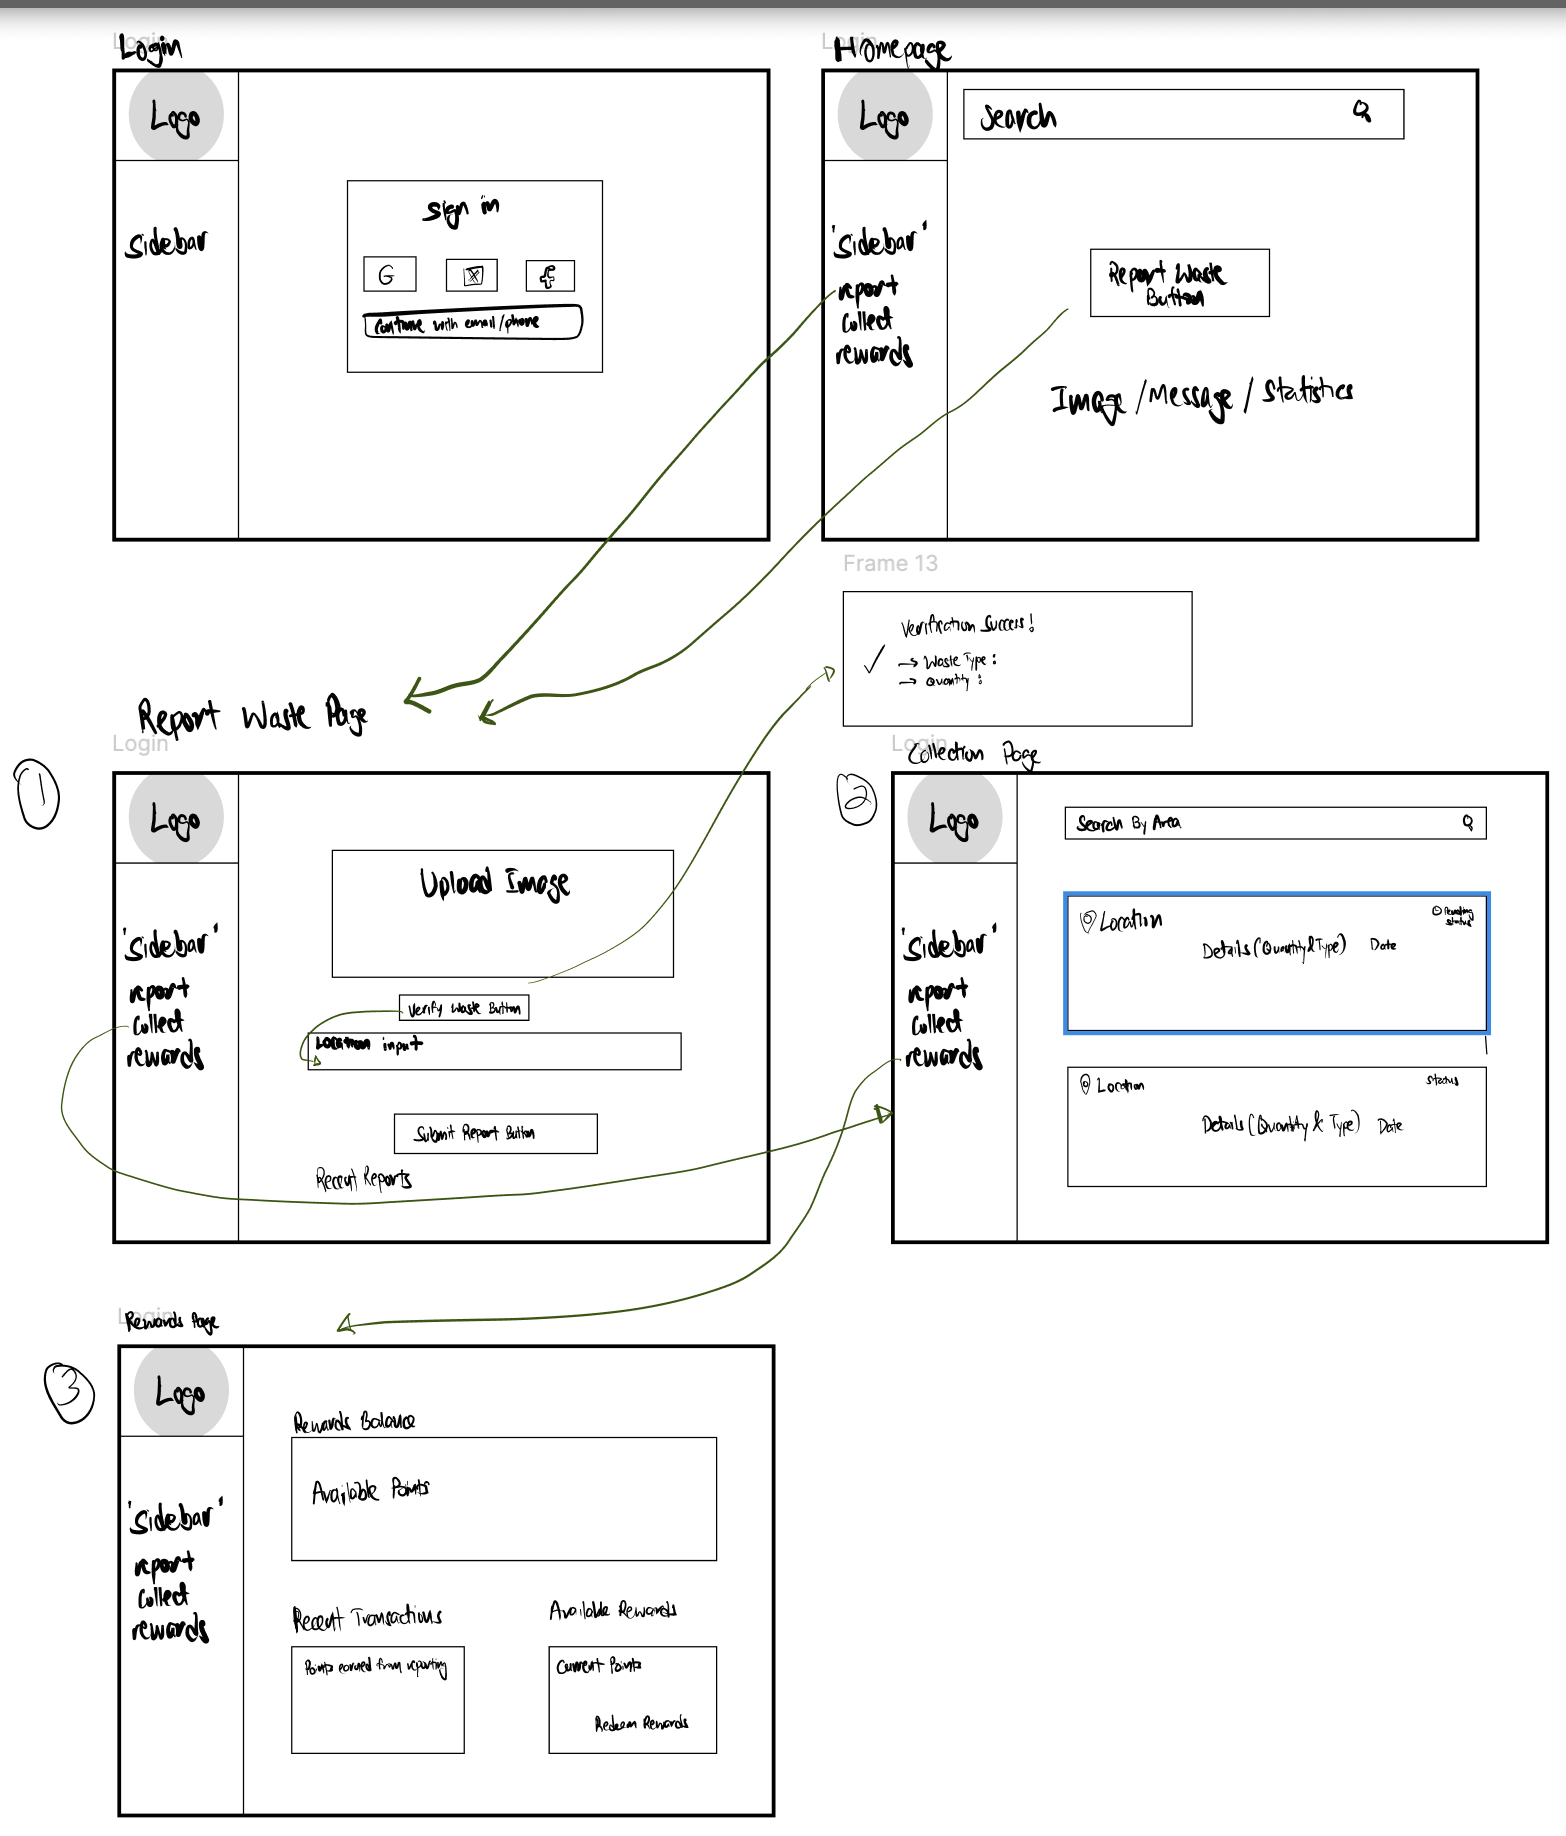 Login
Login
Logo
Sidebar
Sign in
G
X
f
Continue with email/phone
Login
Homepage
Logo
Search
'Sidebar'
report
Collect
rewards
Report Waste
Button
Image/Message/Statistics
Frame 13
Verification Success!
→ Waste Type:
→ Quantity:
Report Waste Page
Login
1
Logo
'Sidebar'
report
Collect
rewards
Upload Image
Verify Waste Button
Location input
Submit Report Button
Recent Reports
Login
Collection Page
2
Logo
'Sidebar'
report
Collect
rewards
Search By Area
Location
Pending
Status
Details (Quantity & Type) Date
Location
Status
Details (Quantity & Type) Date
Login
Rewards Page
3
Logo
'Sidebar'
report
Collect
rewards
Rewards Balance
Available Points
Recent Transactions
Points earned from reporting
Available Rewards
Current Points
Redeem Rewards